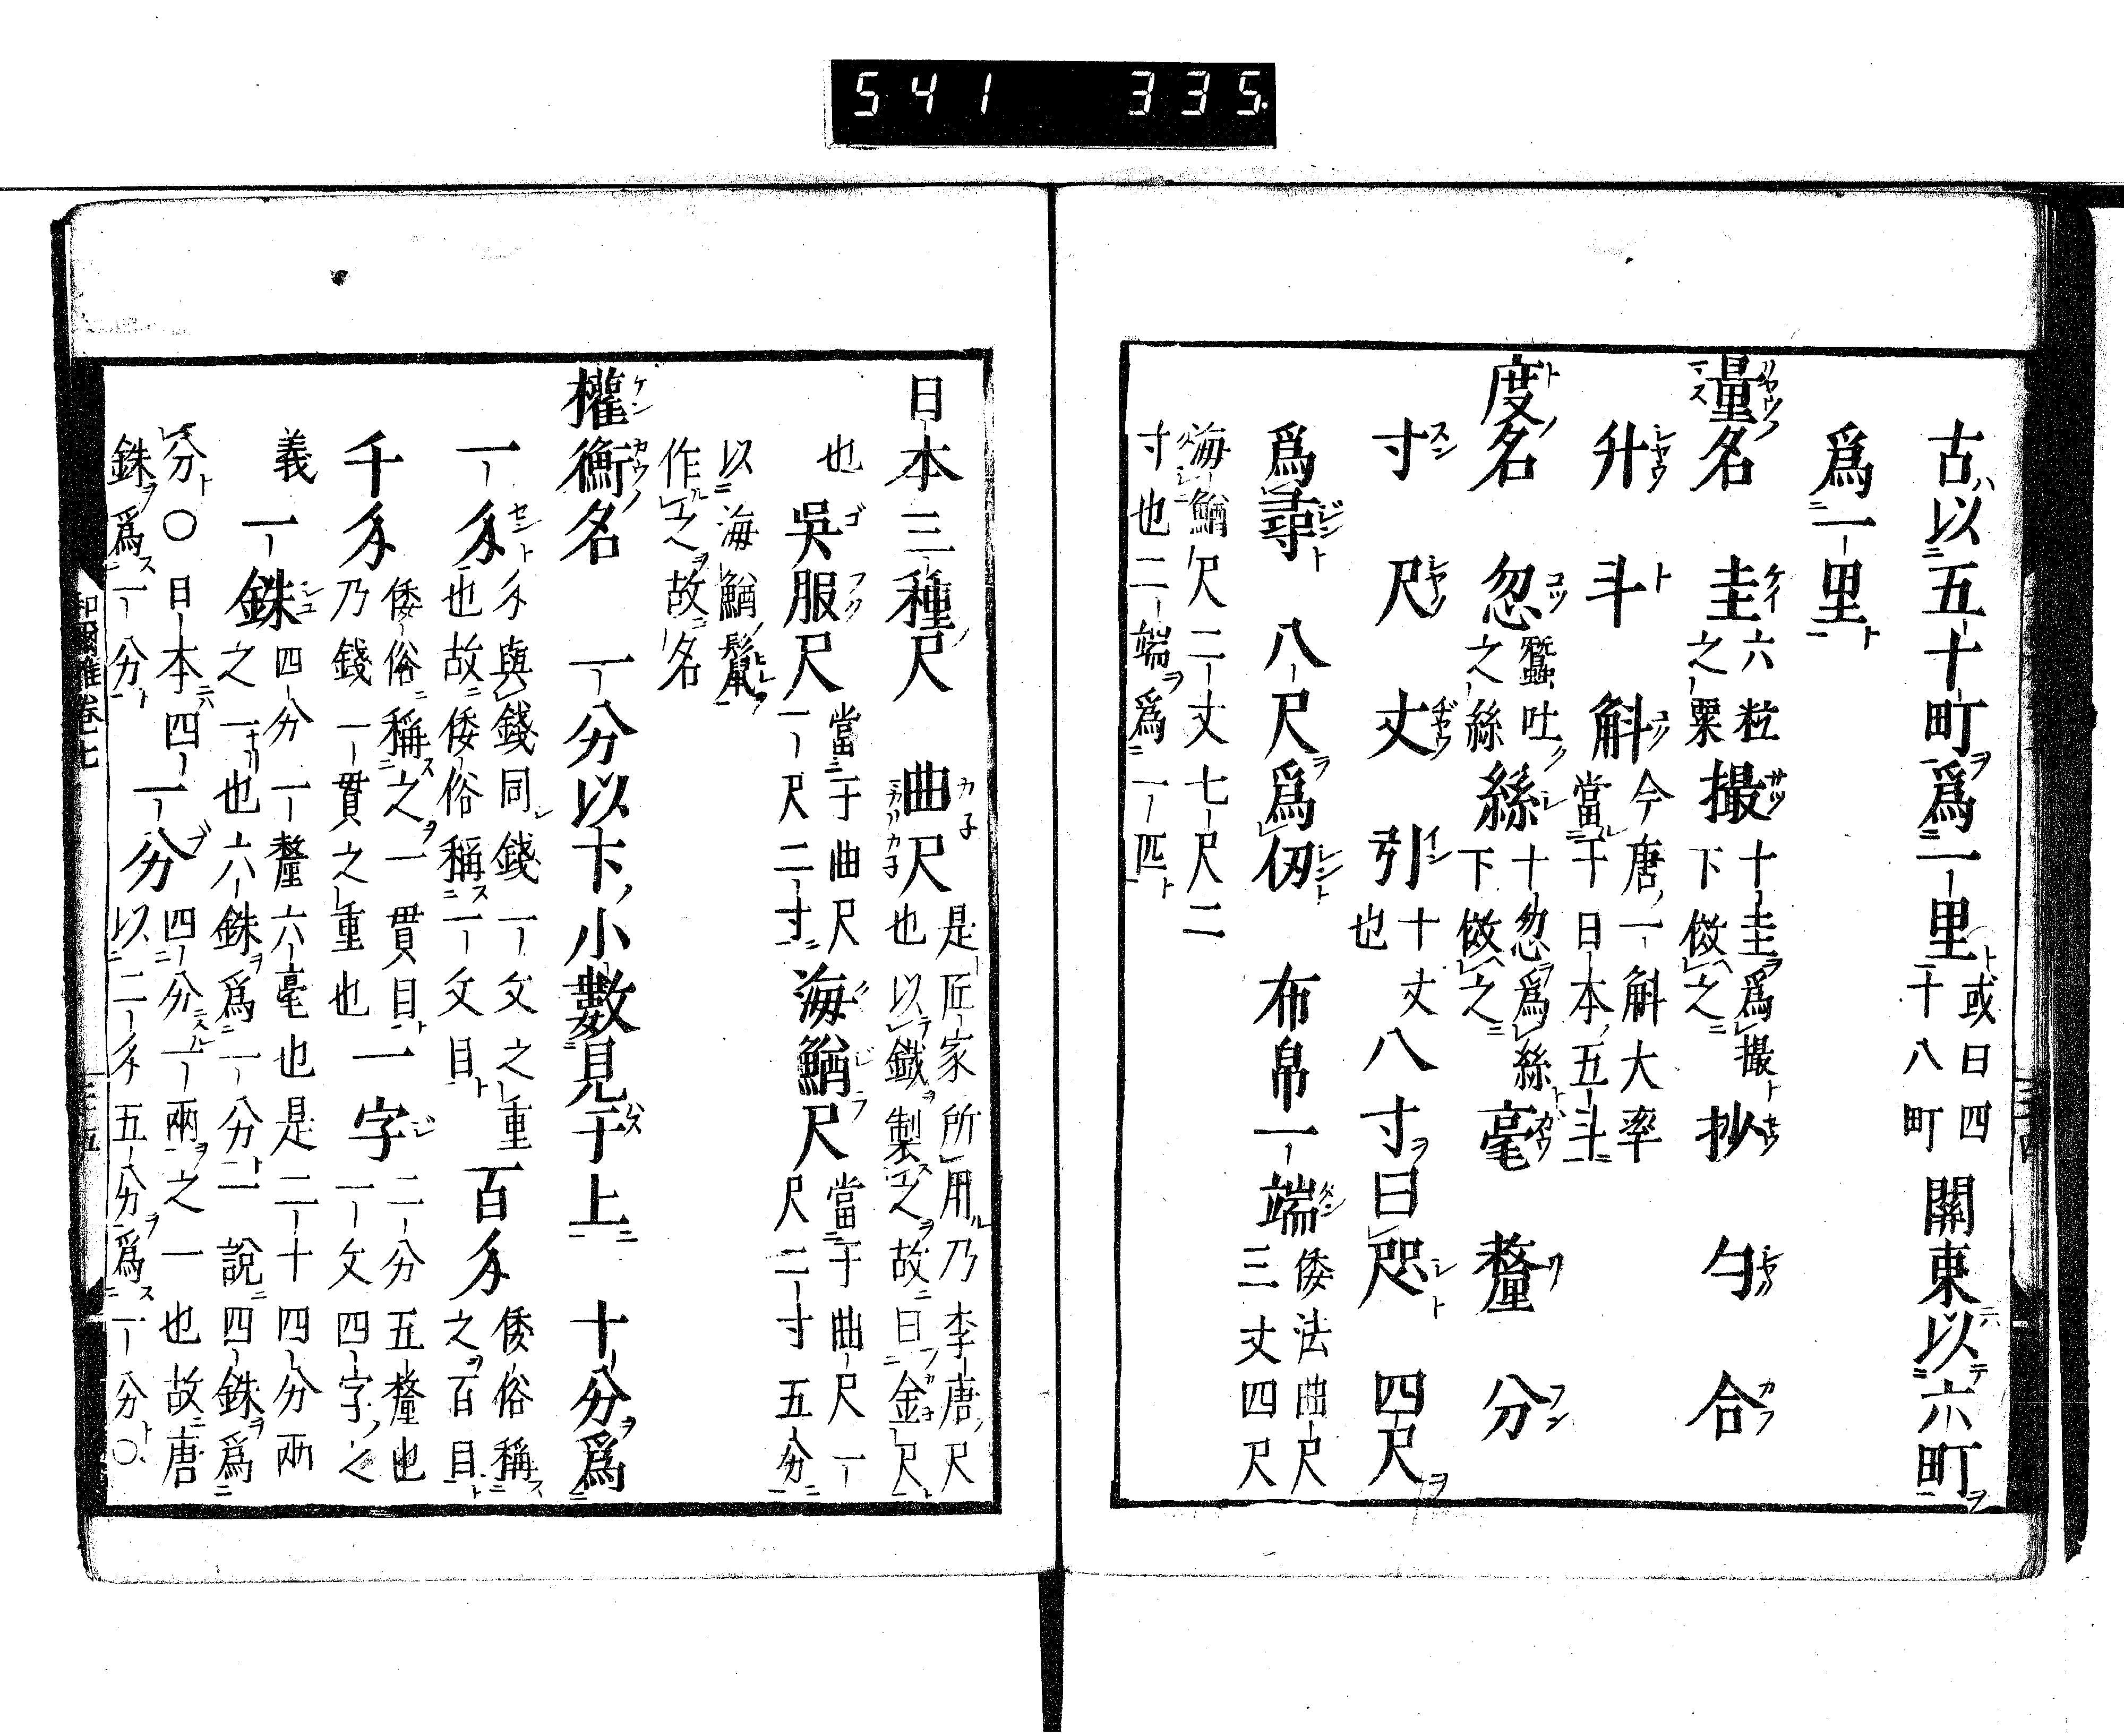 541 335.
古以五十町爲一里或曰四十八町 關東以六町
爲一里
量名 圭六粒之粟 撮十圭爲撮下倣之 抄 勺 合
升 斗 斛今唐一斛大率當于日本五斗
度名 忽蠶吐之絲 絲十忽爲絲下倣之 毫 釐 分
寸 尺 丈 引十丈也 八寸曰咫 四尺
爲尋 八尺爲仭 布帛一端倭法曲尺三丈四尺
海鰌尺二丈七尺二
寸也二端爲一匹
日本三種尺 曲尺是匠家所用乃李唐尺也以鐵製之故曰金尺
也 吳服尺當于曲尺一尺二寸 海鰌尺當于曲尺一尺二寸五分
以海鰌鬚
作之故名
權衡名 一分以下小數見于上 十分爲
一匁匁與錢同錢一文之重也故倭俗稱一文目 百匁倭俗稱之百目
千匁倭俗稱之一貫目乃錢一貫之重也 一字二分五釐也一文四字之
義 一銖四分一釐六毫也是二十四分兩之一也六銖爲一分一說四銖爲
分○日本四一分四分一兩之一也故唐
銖爲一分 以二匁五分爲一分○
和爾雅卷七